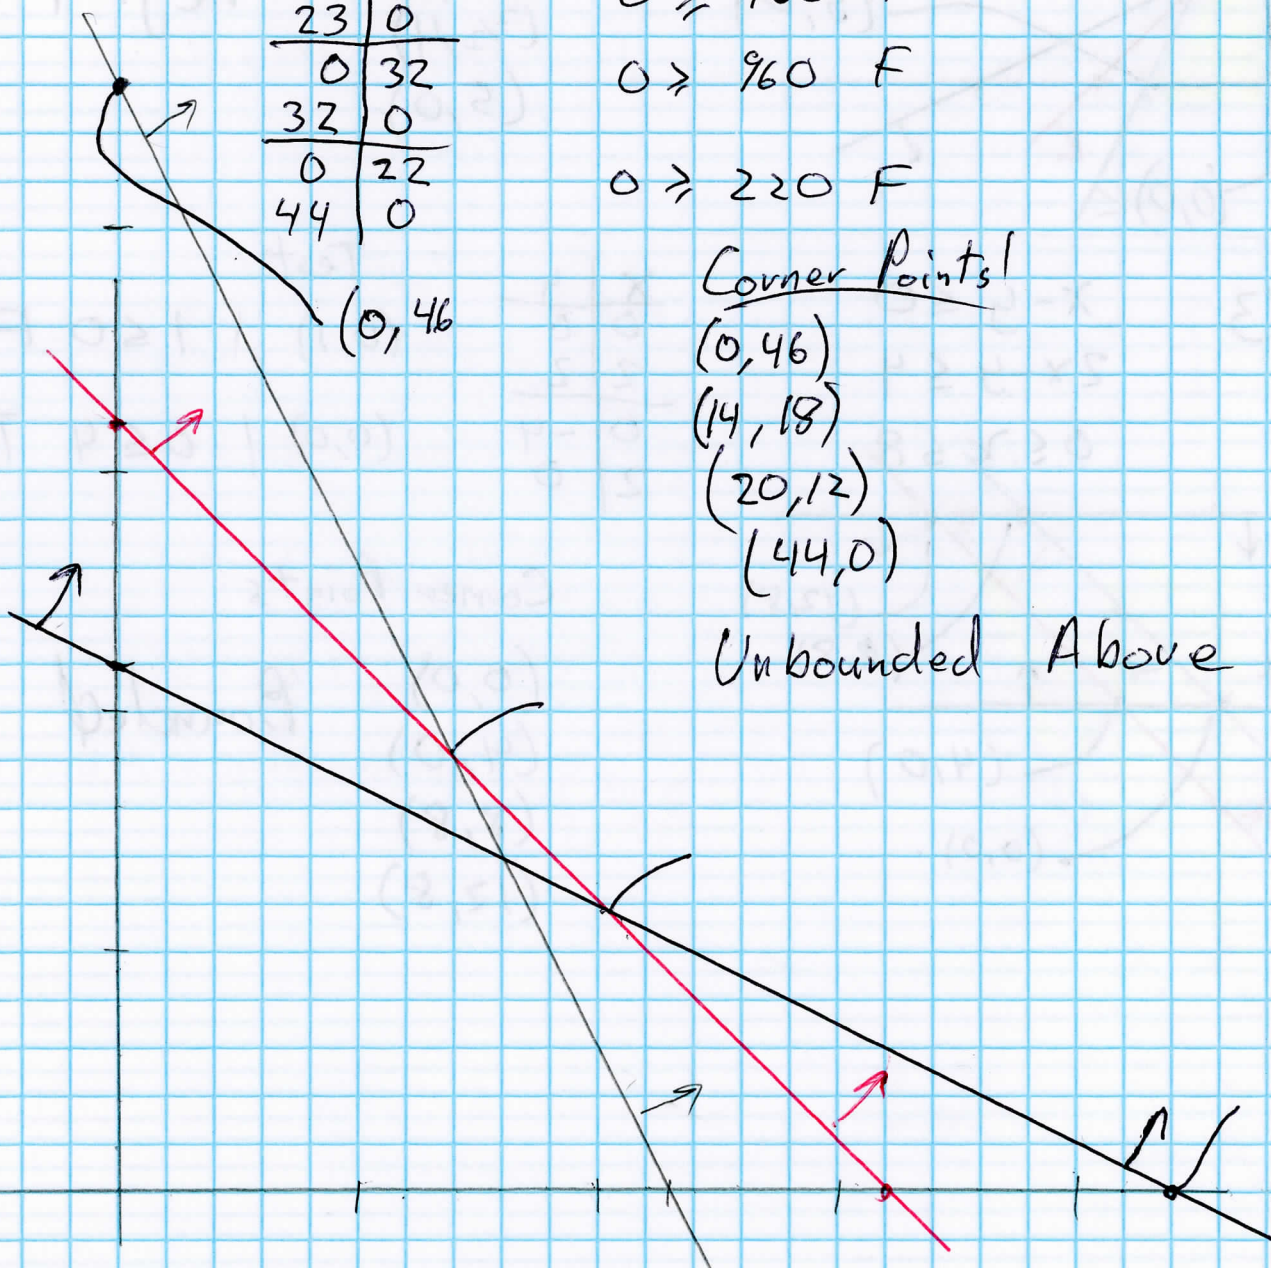 23 0
0 32
32 0
0 22
44 0
0 ≥ 960 F
0 ≥ 220 F
(0, 46
Corner Points!
(0,46)
(14, 18)
(20,12)
(44,0)
Unbounded Above